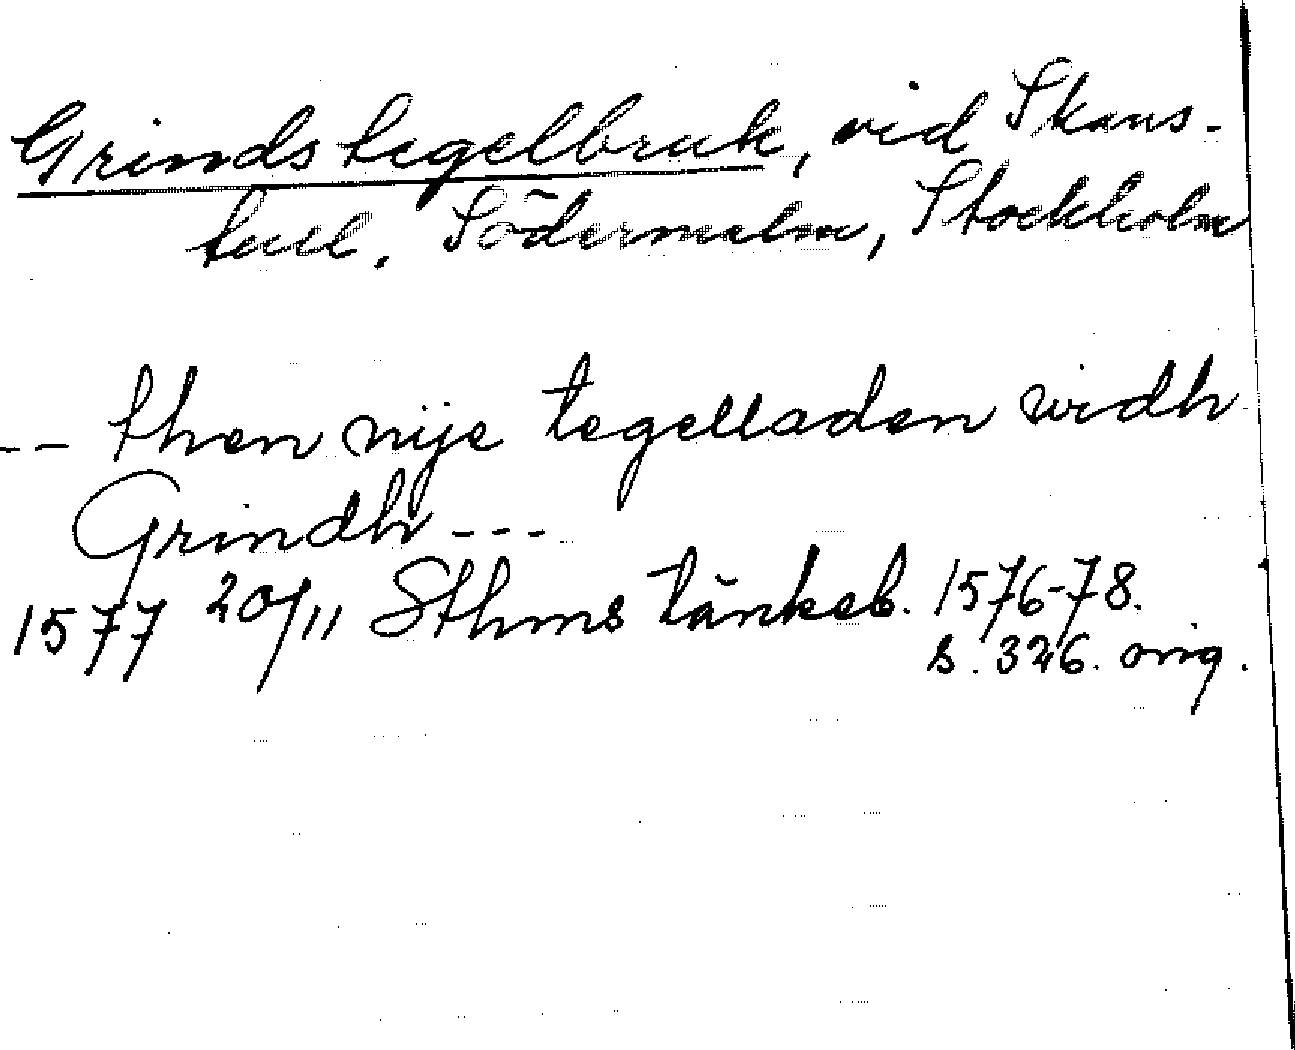 Grinds tegelbruk, vid Skans-
tull. Södermalm, Stockholm
-- then nije tegelladen widh
Grindh ---
1577 20/11 Sthms tänkeb. 1576-78.
s. 326. orig.